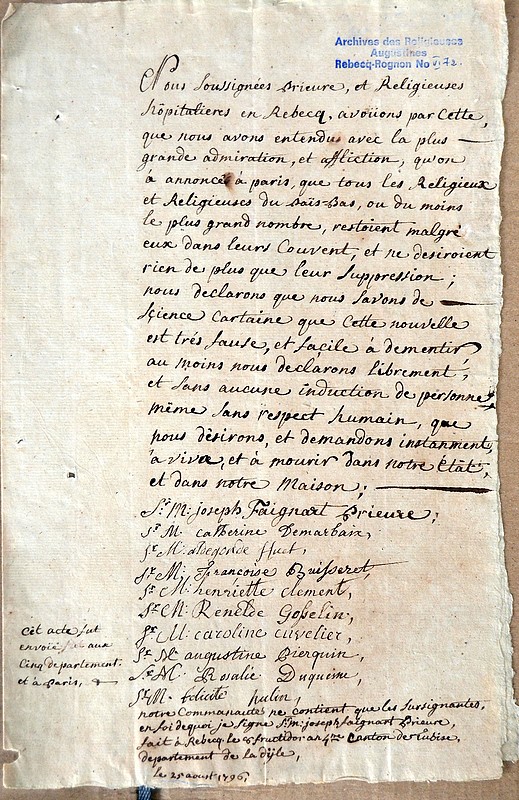 Archives des Religieuses
Augustines
Rebecq-Rognon No VI.72.
Nous soussignées prieure, et Religieuses
hôpitalieres en Rebecq, avoüons par cette,
que nous avons entendus avec la plus
grande admiration, et affliction, qu'on
à annoncé à paris, que tous les Religieux
et Religieuses du Païs-Bas, ou du moins
le plus grand nombre, restoient malgré
eux dans leurs Couvent, et ne desiroient
rien de plus que leur suppression ;
nous declarons que nous savons de
science cartaine que cette nouvelle
est très fause, et facile à dementir,
au moins nous declarons librement,
et sans aucune induction de personne,
même sans respect humain, que
nous dèsirons, et demandons instanment,
a vivre, et à mourir dans notre État,
et dans notre Maison ;
Sr. M: joseph Faignart Prieure ;
Sr M. catherine Demarbaix,
Sr M. aldegonde huet,
Sr M: Françoise Buisseret,
Sr M: henriette clement,
Sr M: Renelde Gobelin,
Sr M: caroline cuvelier,
Sr M augustine Pierquin,
Sr M. Rosalie Duquesne,
Sr M. felicité hulin,
notre Communauté ne contient que les sursignantes,
en foi de quoi je signe Sr. M: joseph faignart Prieure,
fait à Rebecq le 8 fructidor an 4me Canton de tubise,
departement de la dijle,
le 25 aoust 1796,
cet acte fut
envoié aux
cinq departement.
et à Paris,